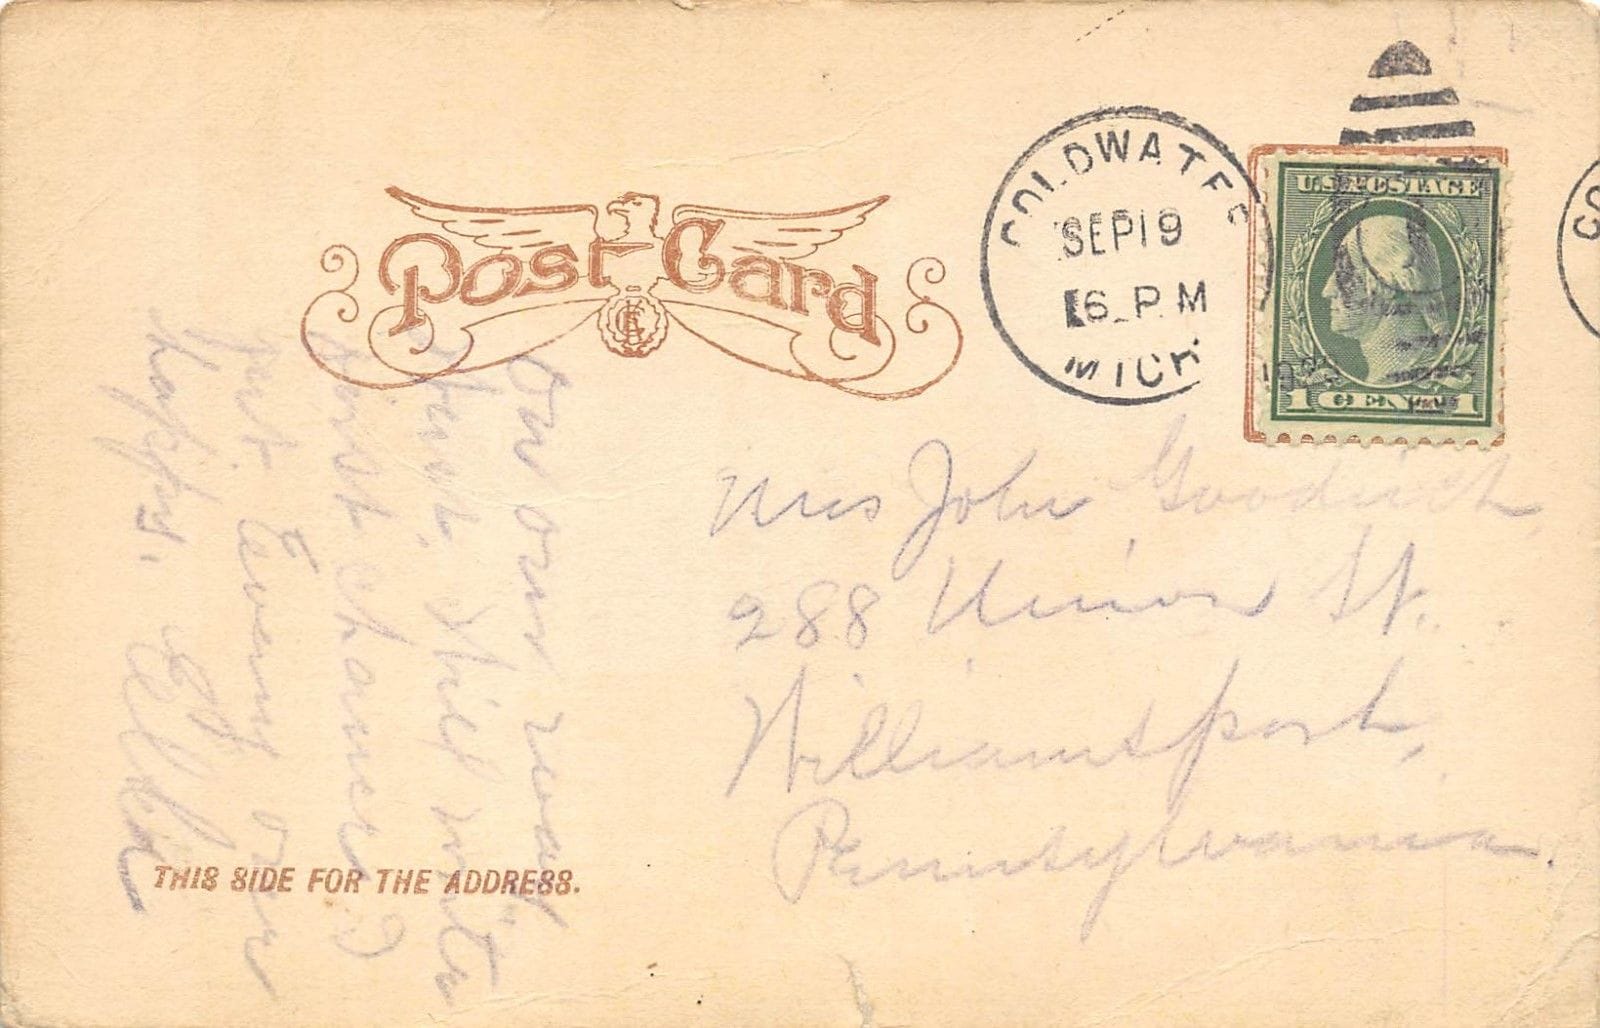 Post Card
COLDWATER
SEP 19
6 PM
MICH
U.S. POSTAGE
1 CENT 1
CO
Mrs John Goodrich,
288 Union St.
Williamsport,
Pennsylvania.
On our way
Will write
first chance
just. Every one
happy.
THIS SIDE FOR THE ADDRESS.